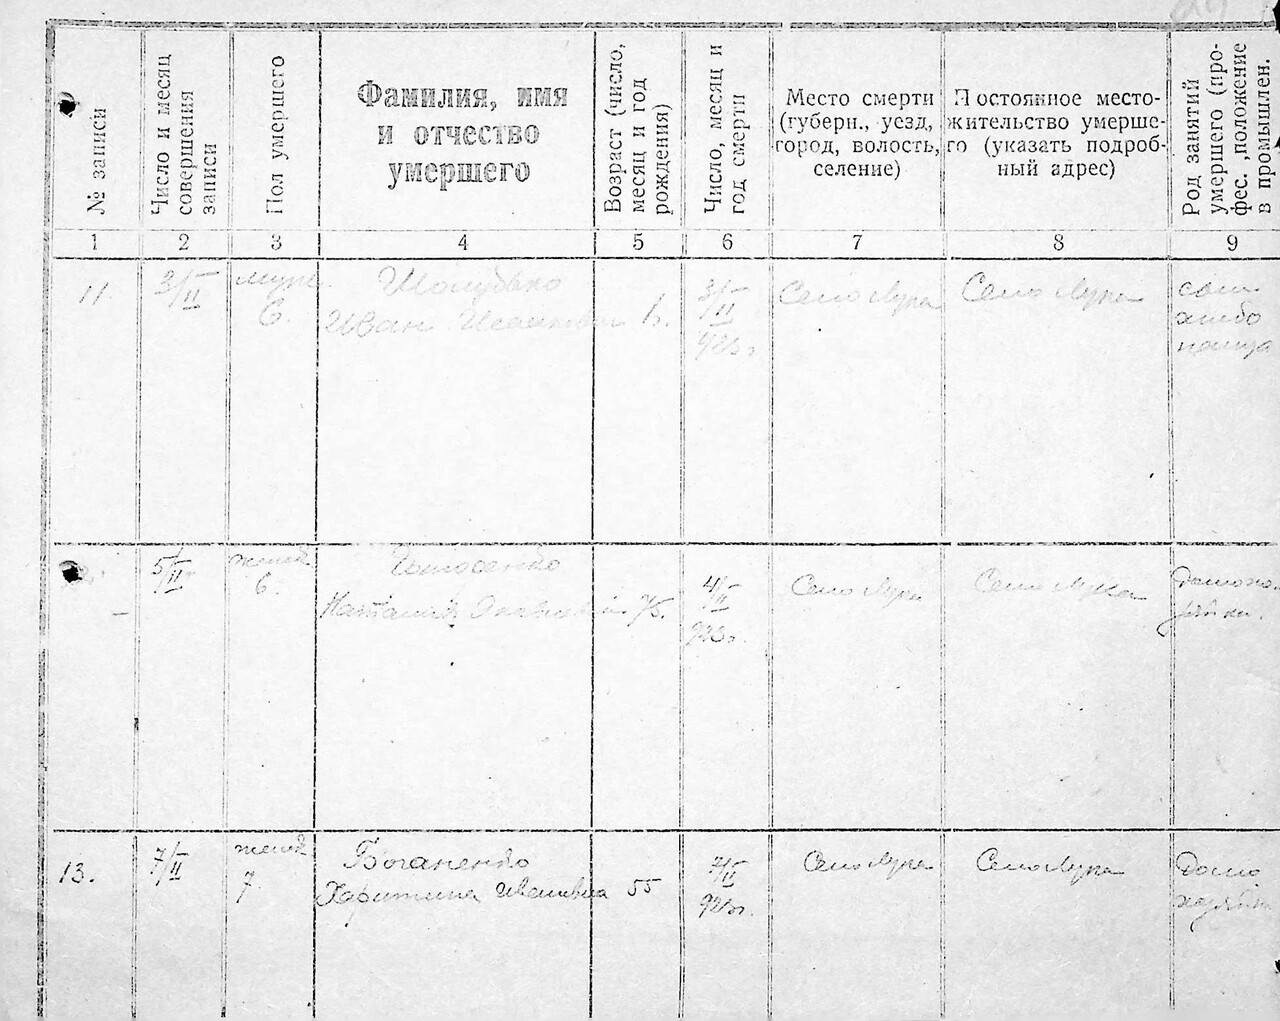 № записи
Число и месяц
совершения
записи
Пол умершего
Фамилия, имя
и отчество
умершего
Возраст (число,
месяц и год
рождения)
Число, месяц и
год смерти
Место смерти
(губерн., уезд,
город, волость,
селение)
Постоянное место-
жительство умерше-
го (указать подроб-
ный адрес)
Род занятий
умершего (про-
фес. ,положение
в промышлен.
1
2
3
4
5
6
7
8
9
11.
3/II
муж.
6.
Иван
3/II
923г.
Село Лука
Село Лука
сын
хлебо
пашца
5/II
женск
6.
Наталия
75.
4/II
923г.
Село Лука
Село Лука
Домохо
зяйка.
13.
7/II
женск
7.
Боганенко
Харитина Ивановна
55
7/II
923г.
Село Лука
Село Лука
Домо
хозяйка